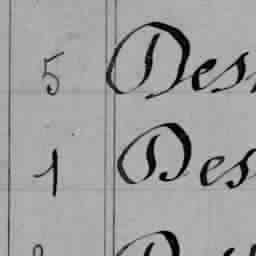 5 Des
1 Des